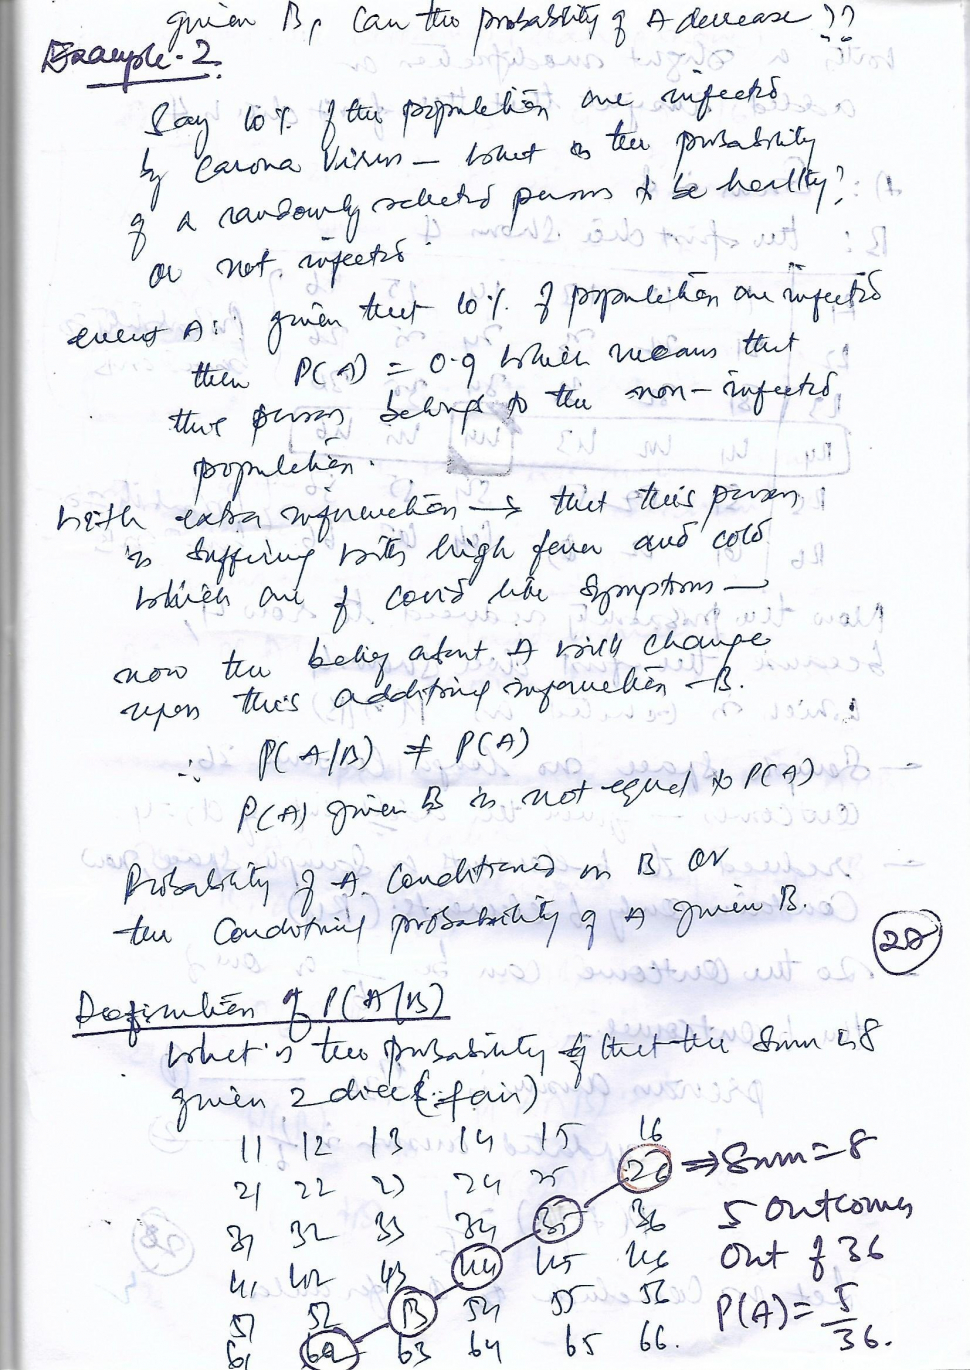 given B, Can the probability of A decrease ??
Example-2.
Say 10% of the population are infected
by Carona Virus – what is the probability
of a randomly selected person to be healthy?
or not infected
event A: given that 10% of population are infected
then P(A) = 0.9 which means that
this person belongs to the non-infected
population.
With extra information → that this person
is suffering with high fever and cold
which are of covid like symptoms –
now the belief about A will change
upon this additional information – B.
∴ P(A/B) ≠ P(A)
P(A) given B is not equal to P(A)
Probability of A conditioned on B or
the Conditional probability of A given B.
28
Definition of P(A/B)
What is the probability that the Sum is 8
given 2 dice (fair)
11 12 13 14 15 16
21 22 23 24 25 26 ⇒ Sum = 8
31 32 33 34 35 36 5 outcomes
41 42 43 44 45 46 Out of 36
51 52 53 54 55 56 P(A) = 5/36.
61 62 63 64 65 66.